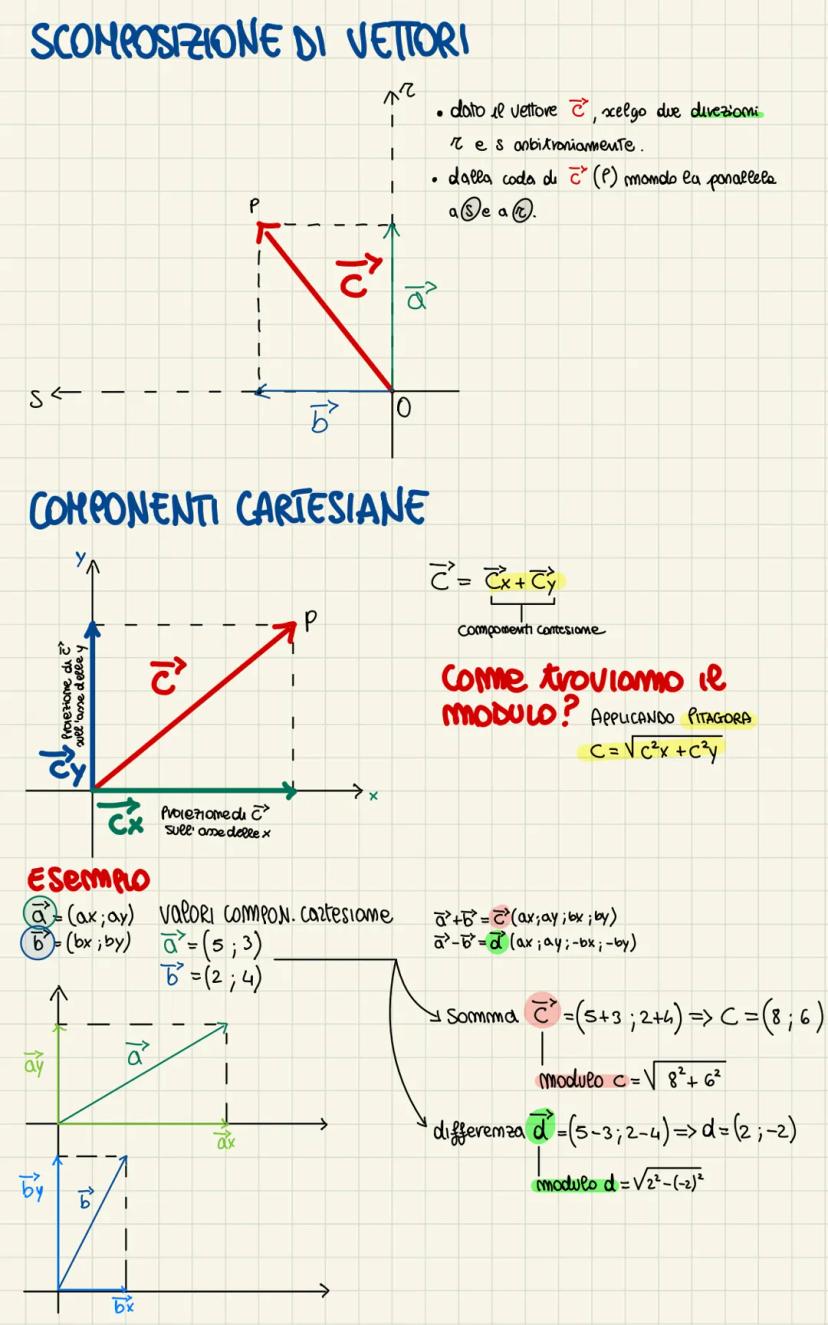 SCOMPOSIZIONE DI VETTORI
r
• dato il vettore c⃗, scelgo due direzioni
r e s arbitrariamente.
• dalla coda di c⃗ (P) mando la parallela
a s e a r.
P
c⃗
a⃗
S
b⃗
O
COMPONENTI CARTESIANE
y
P
c⃗
Proiezione di c⃗
sull'asse delle y
c⃗y
c⃗x
Proiezione di c⃗
sull'asse delle x
x
c⃗ = c⃗x + c⃗y
componenti cartesiane
Come troviamo il
modulo? APPLICANDO PITAGORA
C = √c²x + c²y
Esempio
a⃗ = (ax ; ay)
b⃗ = (bx ; by)
valori compon. cartesiane
a⃗ = (5 ; 3)
b⃗ = (2 ; 4)
a⃗+b⃗ = c⃗ (ax; ay; bx; by)
a⃗-b⃗ = d⃗ (ax; ay; -bx; -by)
Somma c⃗ = (5+3 ; 2+4) => C = (8 ; 6)
modulo c = √8² + 6²
differenza d⃗ = (5-3 ; 2-4) => d = (2 ; -2)
modulo d = √2² - (-2)²
a⃗y
a⃗
a⃗x
b⃗y
b⃗
b⃗x